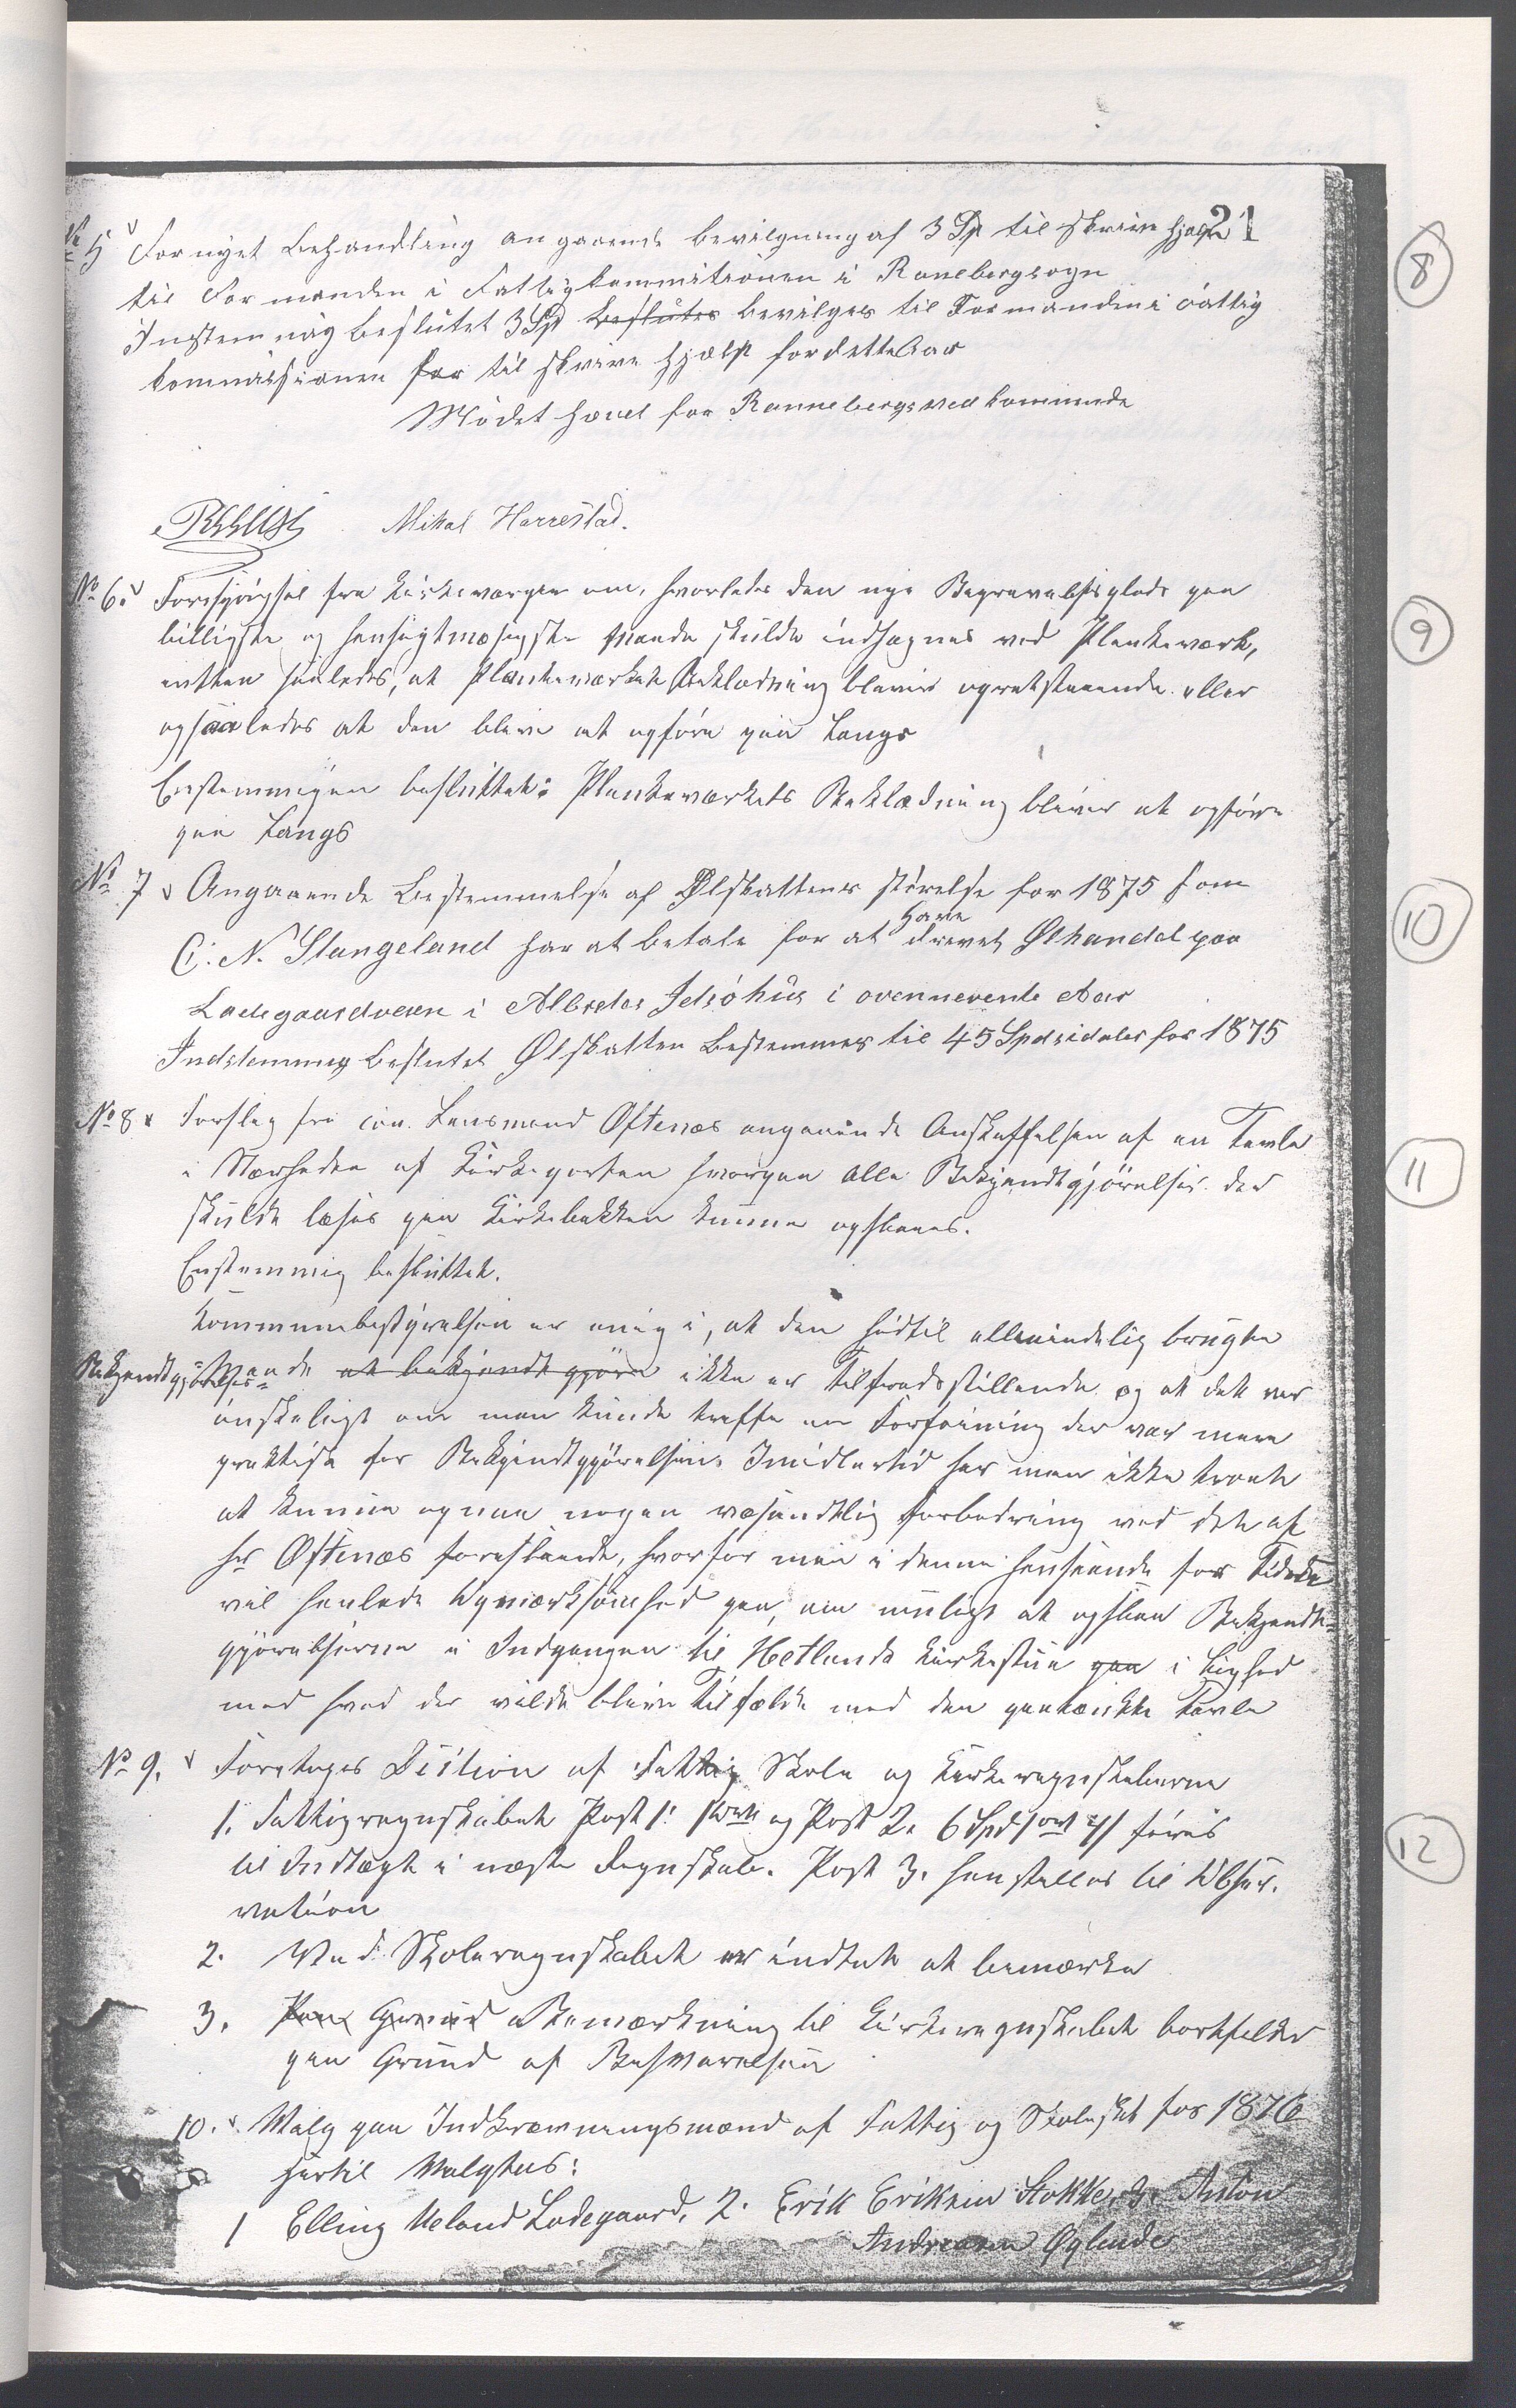 21
No 5 Fornyet Behandling angaaende bevilgning af 3 Sp til skrive hjælp
til Formanden i Fattigkommitionen i Ranebergsogn
Instemmig Beslutet 3 Spd Beslutes bevilges til Formanden i Fattig
kommissionen for til skrive hjælp for dette Aar
Mødet hævet for Rannebergs vedkommende
Mikal Harrestad.
No 6. Forespørgsel fra Kirkevergen om, hvorledes den nye Begravelsesplads paa
billigste og hensigtmæsigste Maade skulde indhegnes ved Plankeværk,
enten saaledes, at Plankeværkets Beklædning bliver opretstaaende eller
og saaledes at den blive at opføre paa Langs
Enstemmigen besluttet: Plankeværkets Beklædning bliver at opføre
paa Langs
No 7 Angaaende Bestemmelse af Ølskattens størelse for 1875 som
C. N. Stangeland har at betale for at have drevet Ølhandel paa
Ladegaardveien i Albreter Idsøhus i ovennevente Aar
Indstemmig Beslutet Ølskatten Bestemmes til 45 Spdsidaler for 1875
No 8 Forslag fra Lensmand Øftenæs angaaende Anskaffelsen af en Tavle
i Nærheden af Kirkeporten hvorpaa alle Bekjendtgjørelser der
skulde læses paa Kirkebakken kunne opslaaes.
Enstemmig besluttet.
Kommunebestyrelsen er enig i, at den hidtil almindelig brugte
Bekjendtgjørelses-Maade at bekjendtgjøre ikke er tilfredsstillende og at det var
ønskeligt om man kunde treffe en Forføining der var mere
praktisk for Bekjendtgjørelsen. Imidlertid har man ikke troet
at kunne opnaa nogen væsendtlig forbedring ved det af
Hr Øftenæs foreslaaede, hvorfor man i denne henseende for Tiden
vil henlede Opmærksomhed paa, om muligt at opslaa Bekjendt-
gjørelserne i Indgangen til Hetlands Kirkestue paa i Lighed
med hvad der vilde blive Tilfælde med den paatænkte Tavle
No 9. Foretages Desition af Fattig Skole og Kirkeregnskaberne
1. Fattigregnskabet Post 1. og Post 2. 6 Spd 1 ort føres
til Indtægt i næste Regnskab. Post 3. henstilles til Obser-
vation
2. Ved Skoleregnskabet er indtet at bemærke
3. Paa Grund Bemærkning til Kirkeregnskabet bortfalder
paa Grund af Besvarelsen
10. Valg paa Indkrævningsmænd af Fattig og Skoleskat for 1876
hertil Valgtes:
1 Elling Ueland Ladegaard, 2. Erik Eriksen Stokke, 3. Anton
Andreasen Øglende
8
9
10
11
12